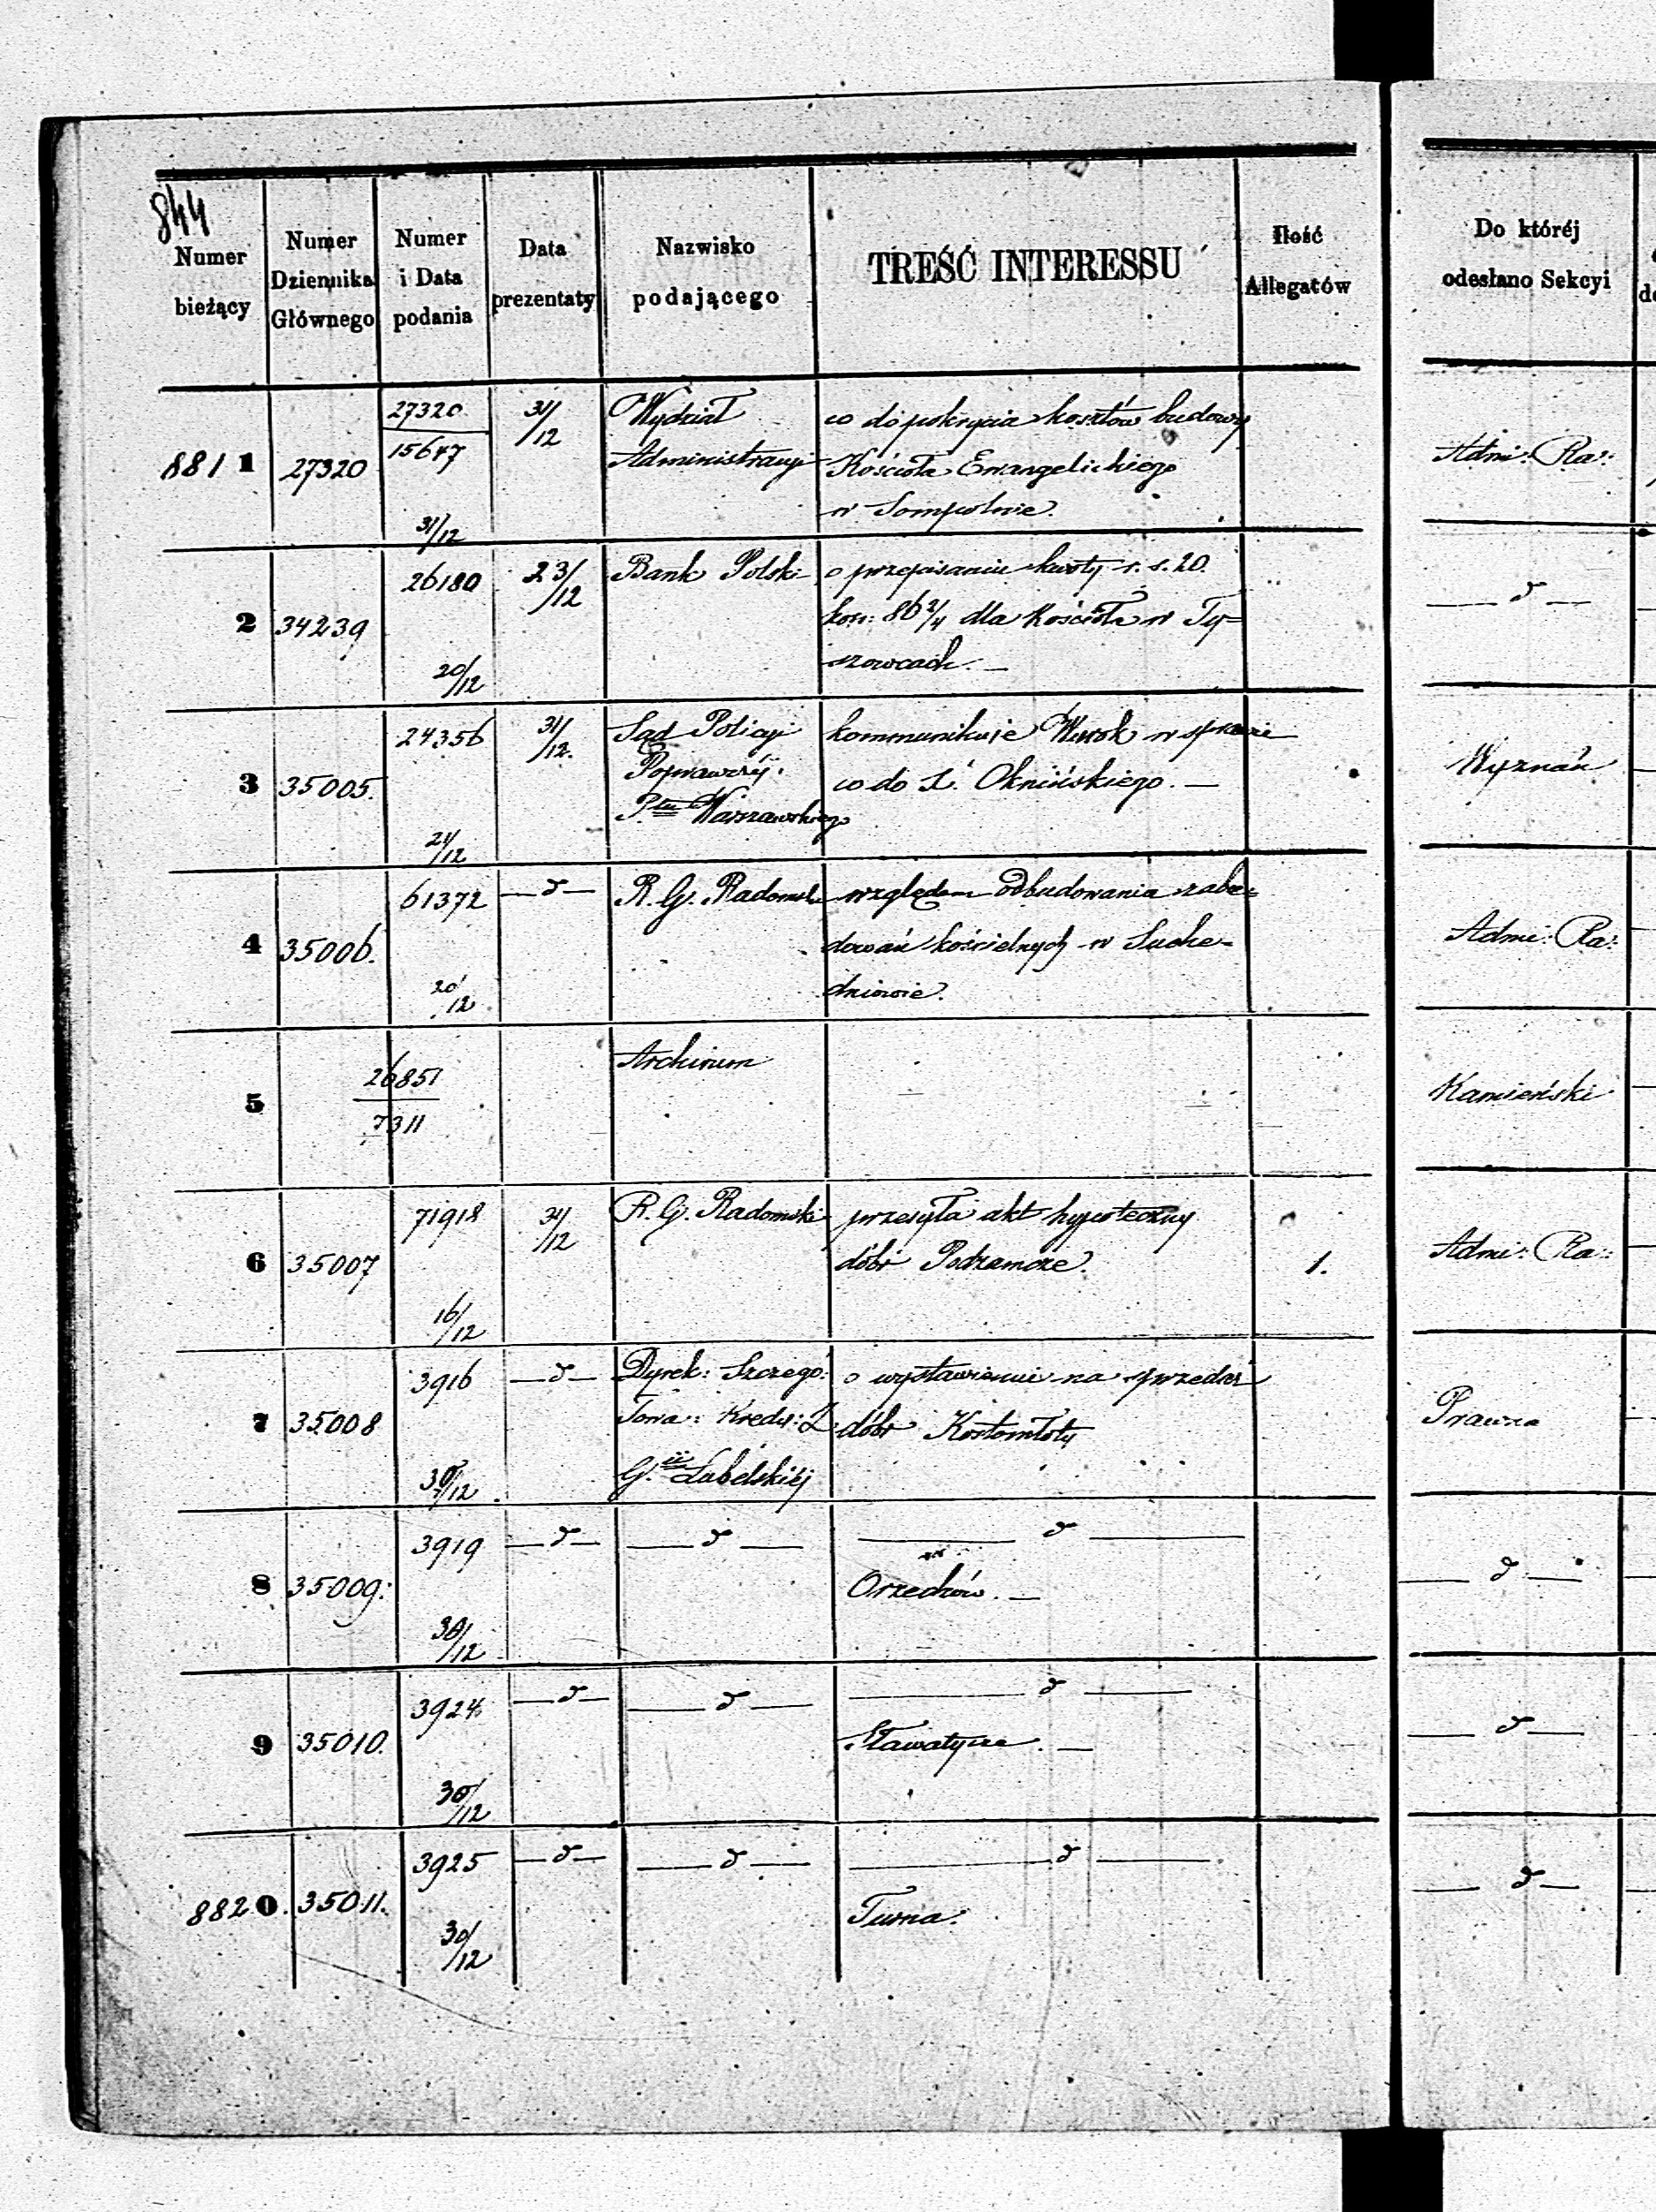 844
Numer bieżący
Numer Dziennika Głównego
Numer i Data podania
Data prezentaty
Nazwisko podającego
TREŚĆ INTERESSU
Ilość Allegatów
Do któréj odesłano Sekcyi
8811 27320 27320/15647 31/12 31/12 Wydział Administracyi co do pokrycia kosztów budowy
Kościoła Ewangelickiego
w Sompolnie.
Adm: Ra:
2 34239 26180 20/12 23/12 Bank Polski o przepisanie kwoty r. s. 20.
kop: 86 2/4 dla Kościoła w Ty=
szowcach. —
— d —
3 35005. 24356 21/12 31/12. Sąd Policyi
Poprawczéj
Ptu Warszawskiego
kommunikuje Wyrok w sprawie
co do X. Oknińskiego. —
Wyznań
4 35006. 61372 20/12 — d — R. G. Radomsk względem odbudowania zabu=
dowań kościelnych w Suche=
dniowie.
Adm: Ra:
5 26851/7311 Archiwum
Kamieński
6 35007 71918 16/12 31/12 R. G. Radomski przesyła akt hypoteczny
dóbr Podzamcze.
1.
Adm: Ra:
7 35008 3916 30/12 — d — Dyrek: Szczegó:
Towa: Kredy: Z
G.ii Lubelskiéj
o wystawienie na sprzedaż
dóbr Kostomłoty
Prawna
8 35009. 3919 30/12 — d — — d — — d —
Orzechów. —
— d —
9 35010. 3924 30/12 — d — — d — — d —
Sławatycze. —
— d —
8820. 35011. 3925 30/12 — d — — d — — d —
Turna.
— d —